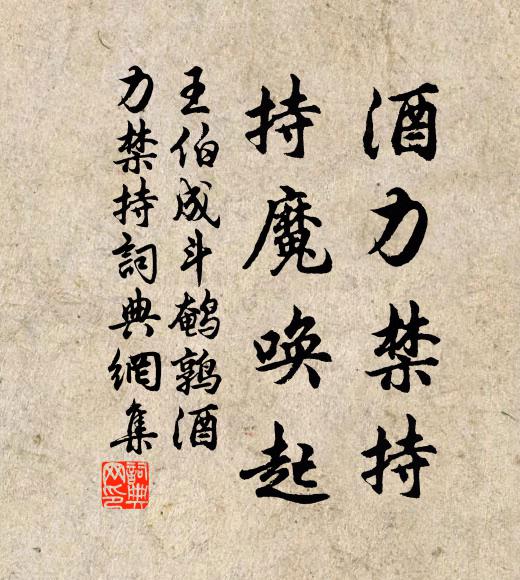 酒力禁持
持魔唤起
王伯成斗鹌鹑酒
力禁持詞典網集
詞典网印